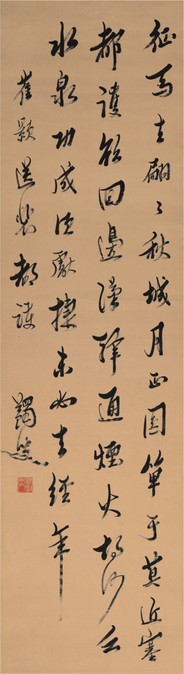 征馬去翩々秋城月正圓單于莫近塞
都護欲回邊漢驛通煙火胡沙乏
水泉功成須獻捷未必去經年
崔顥送裴都護 蠲叟